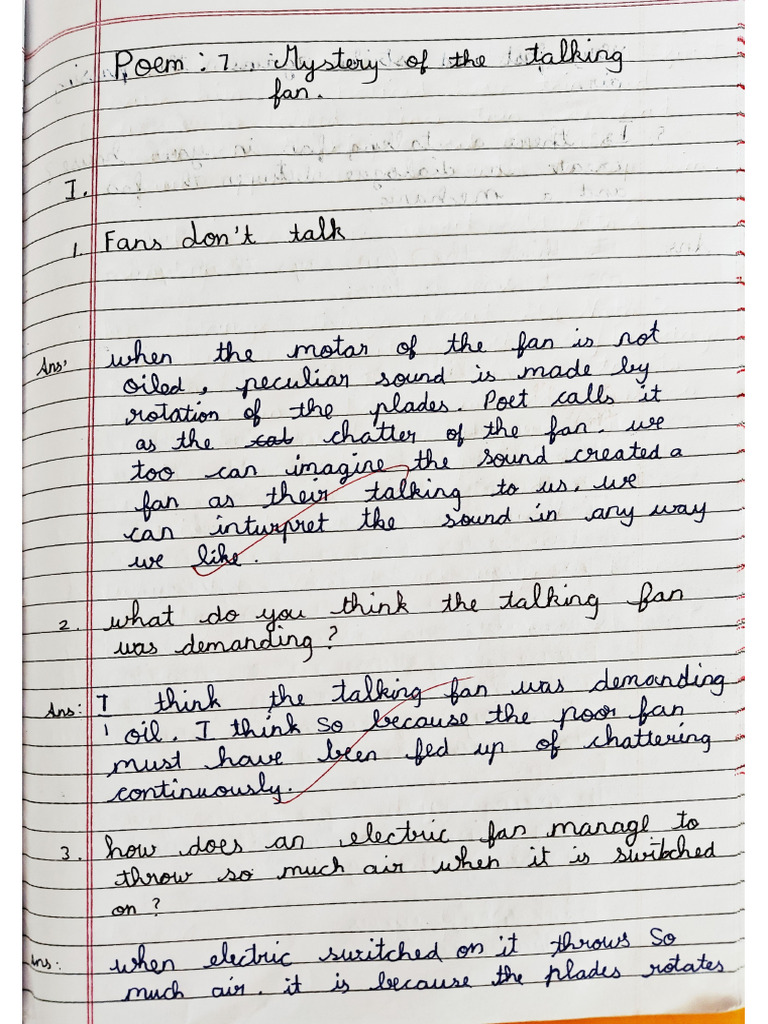 Poem : 7. Mystery of the talking
fan.
I.
1. Fans don't talk
Ans: when the motar of the fan is not
oiled, peculiar sound is made by
rotation of the plades. Poet calls it
as the chatter of the fan. we
too can imagine the sound created a
fan as their talking to us. we
can interpret the sound in any way
we like.
2. what do you think the talking fan
was demanding?
Ans: I think the talking fan was demanding
oil. I think so because the poor fan
must have been fed up of chattering
continuously.
3. how does an electric fan manage to
throw so much air when it is switched
on?
Ans: when electric switched on it throws so
much air. it is because the plades rotates